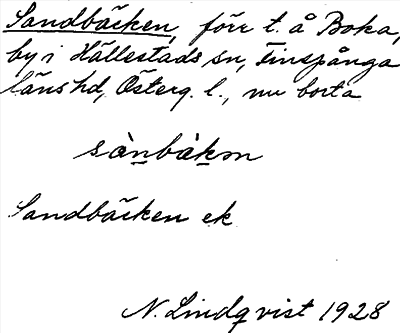 Sandbäcken, förr t. å Boka,
by i Hällestads sn, Finspånga
läns hd, Österg. l., nu borta
sànbàkm
Sandbäcken ek
N. Lindqvist 1928